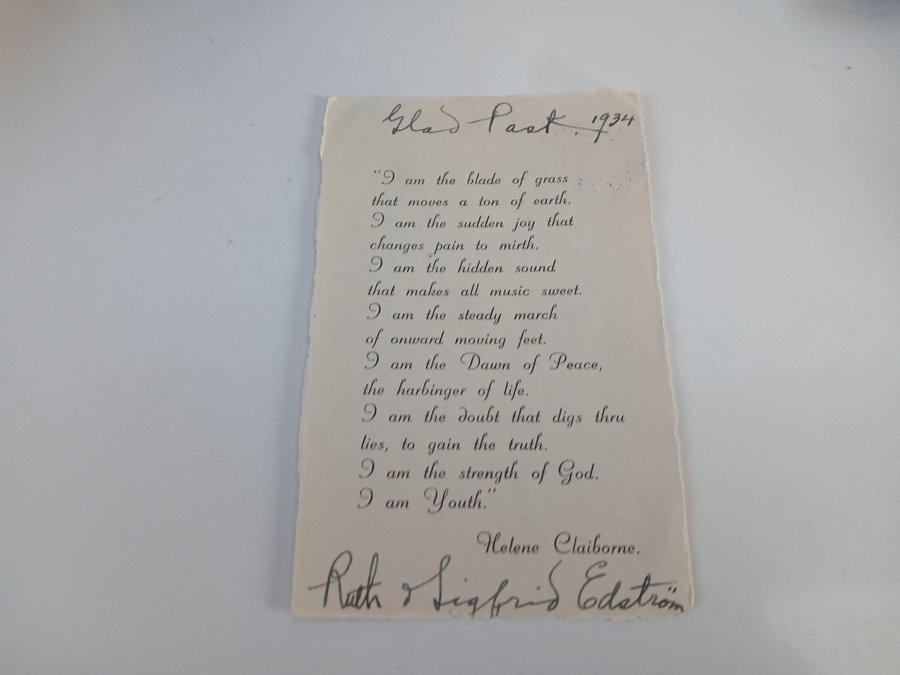 Glad Påsk. 1934
"I am the blade of grass
that moves a ton of earth.
I am the sudden joy that
changes pain to mirth.
I am the hidden sound
that makes all music sweet.
I am the steady march
of onward moving feet.
I am the Dawn of Peace,
the harbinger of life.
I am the doubt that digs thru
lies, to gain the truth.
I am the strength of God.
I am Youth."
Helene Claiborne.
Ruth & Sigfrid Edström